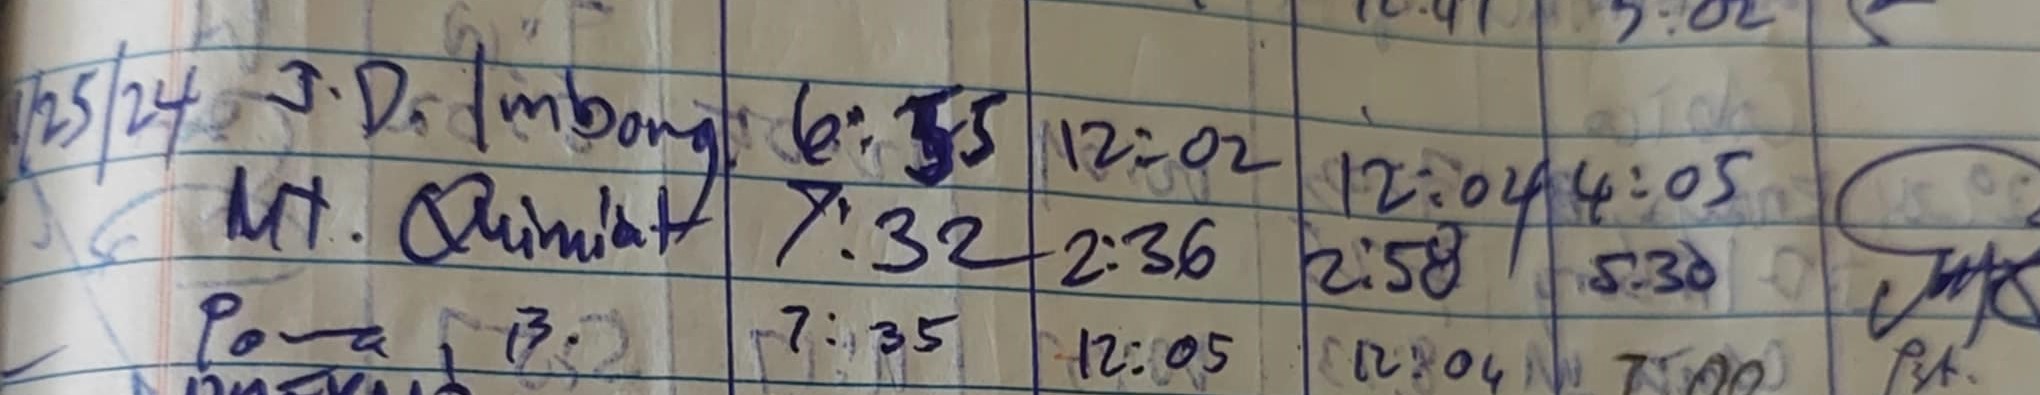 12:41 5:02
1/25/24 J.D. Imbong 6:55 12:02 12:04 4:05
MT. Quimiat 7:32 2:36 2:58 5:30
7:35 12:05 12:04 7:00